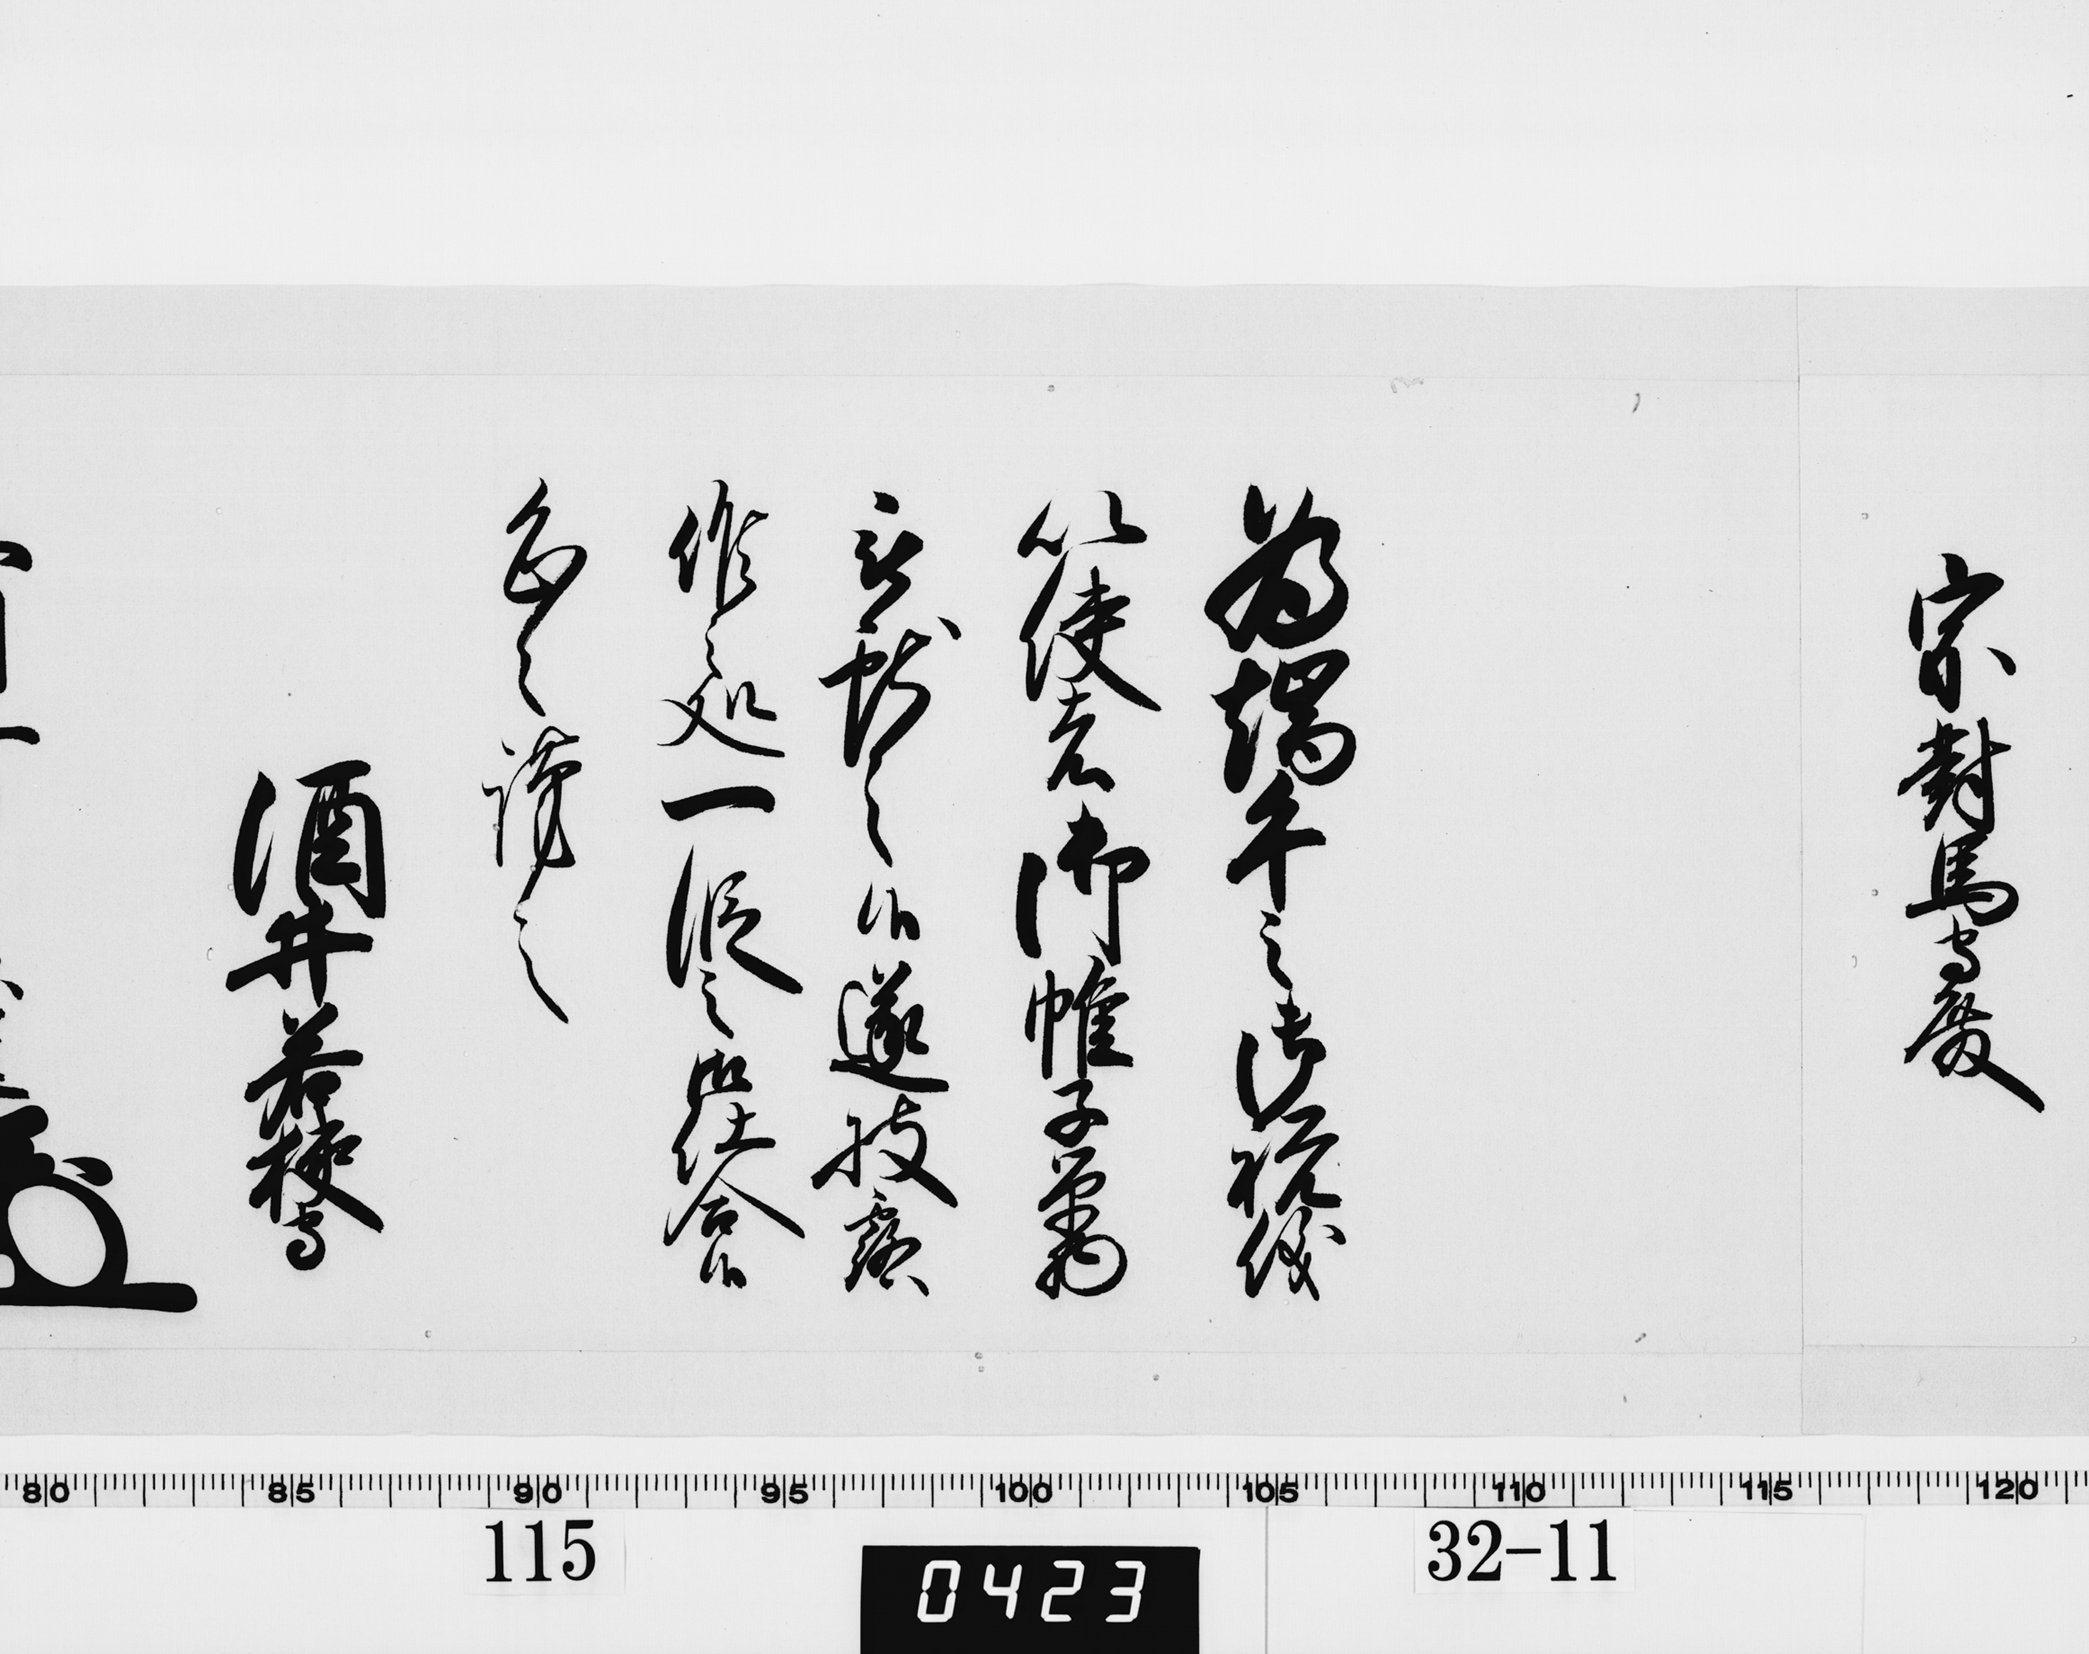 宗對馬守殿
為端午之御祝儀
以使者御帷子單物
被獻之候遂披露
候之処一段之御仕合候
恐々謹言
酒井若狭守
80 85 90 95 100 105 110 115 120
115
0423
32-11